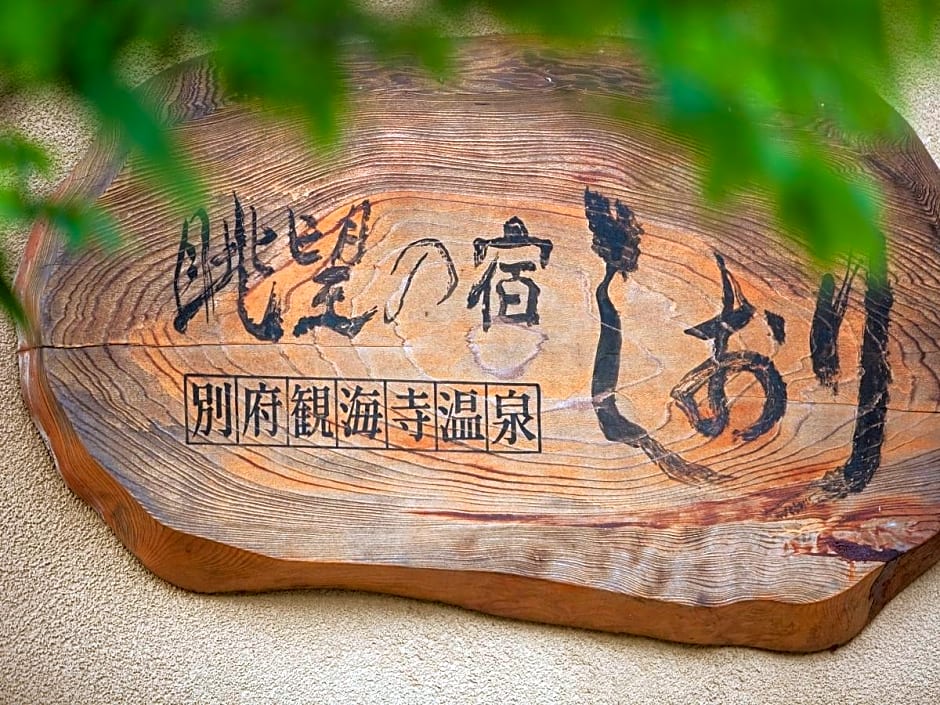 眺望の宿しおり
別府観海寺温泉